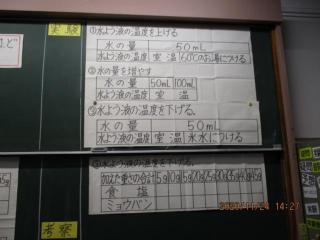 実験
①水よう液の温度を上げる
水の量 50mL
水よう液の温度 室温 60℃のお湯につける
②水の量を増やす
水の量 50mL 100mL
水よう液の温度 室温
③水よう液の温度を下げる。
水の量 50mL
水よう液の温度 室温 氷水につける
③水よう液の温度を下げる。
加えた重さの合計 5g 10g 15g 20g 25g 30g 35g 40g 45g
食塩
ミョウバン
考察
14:27